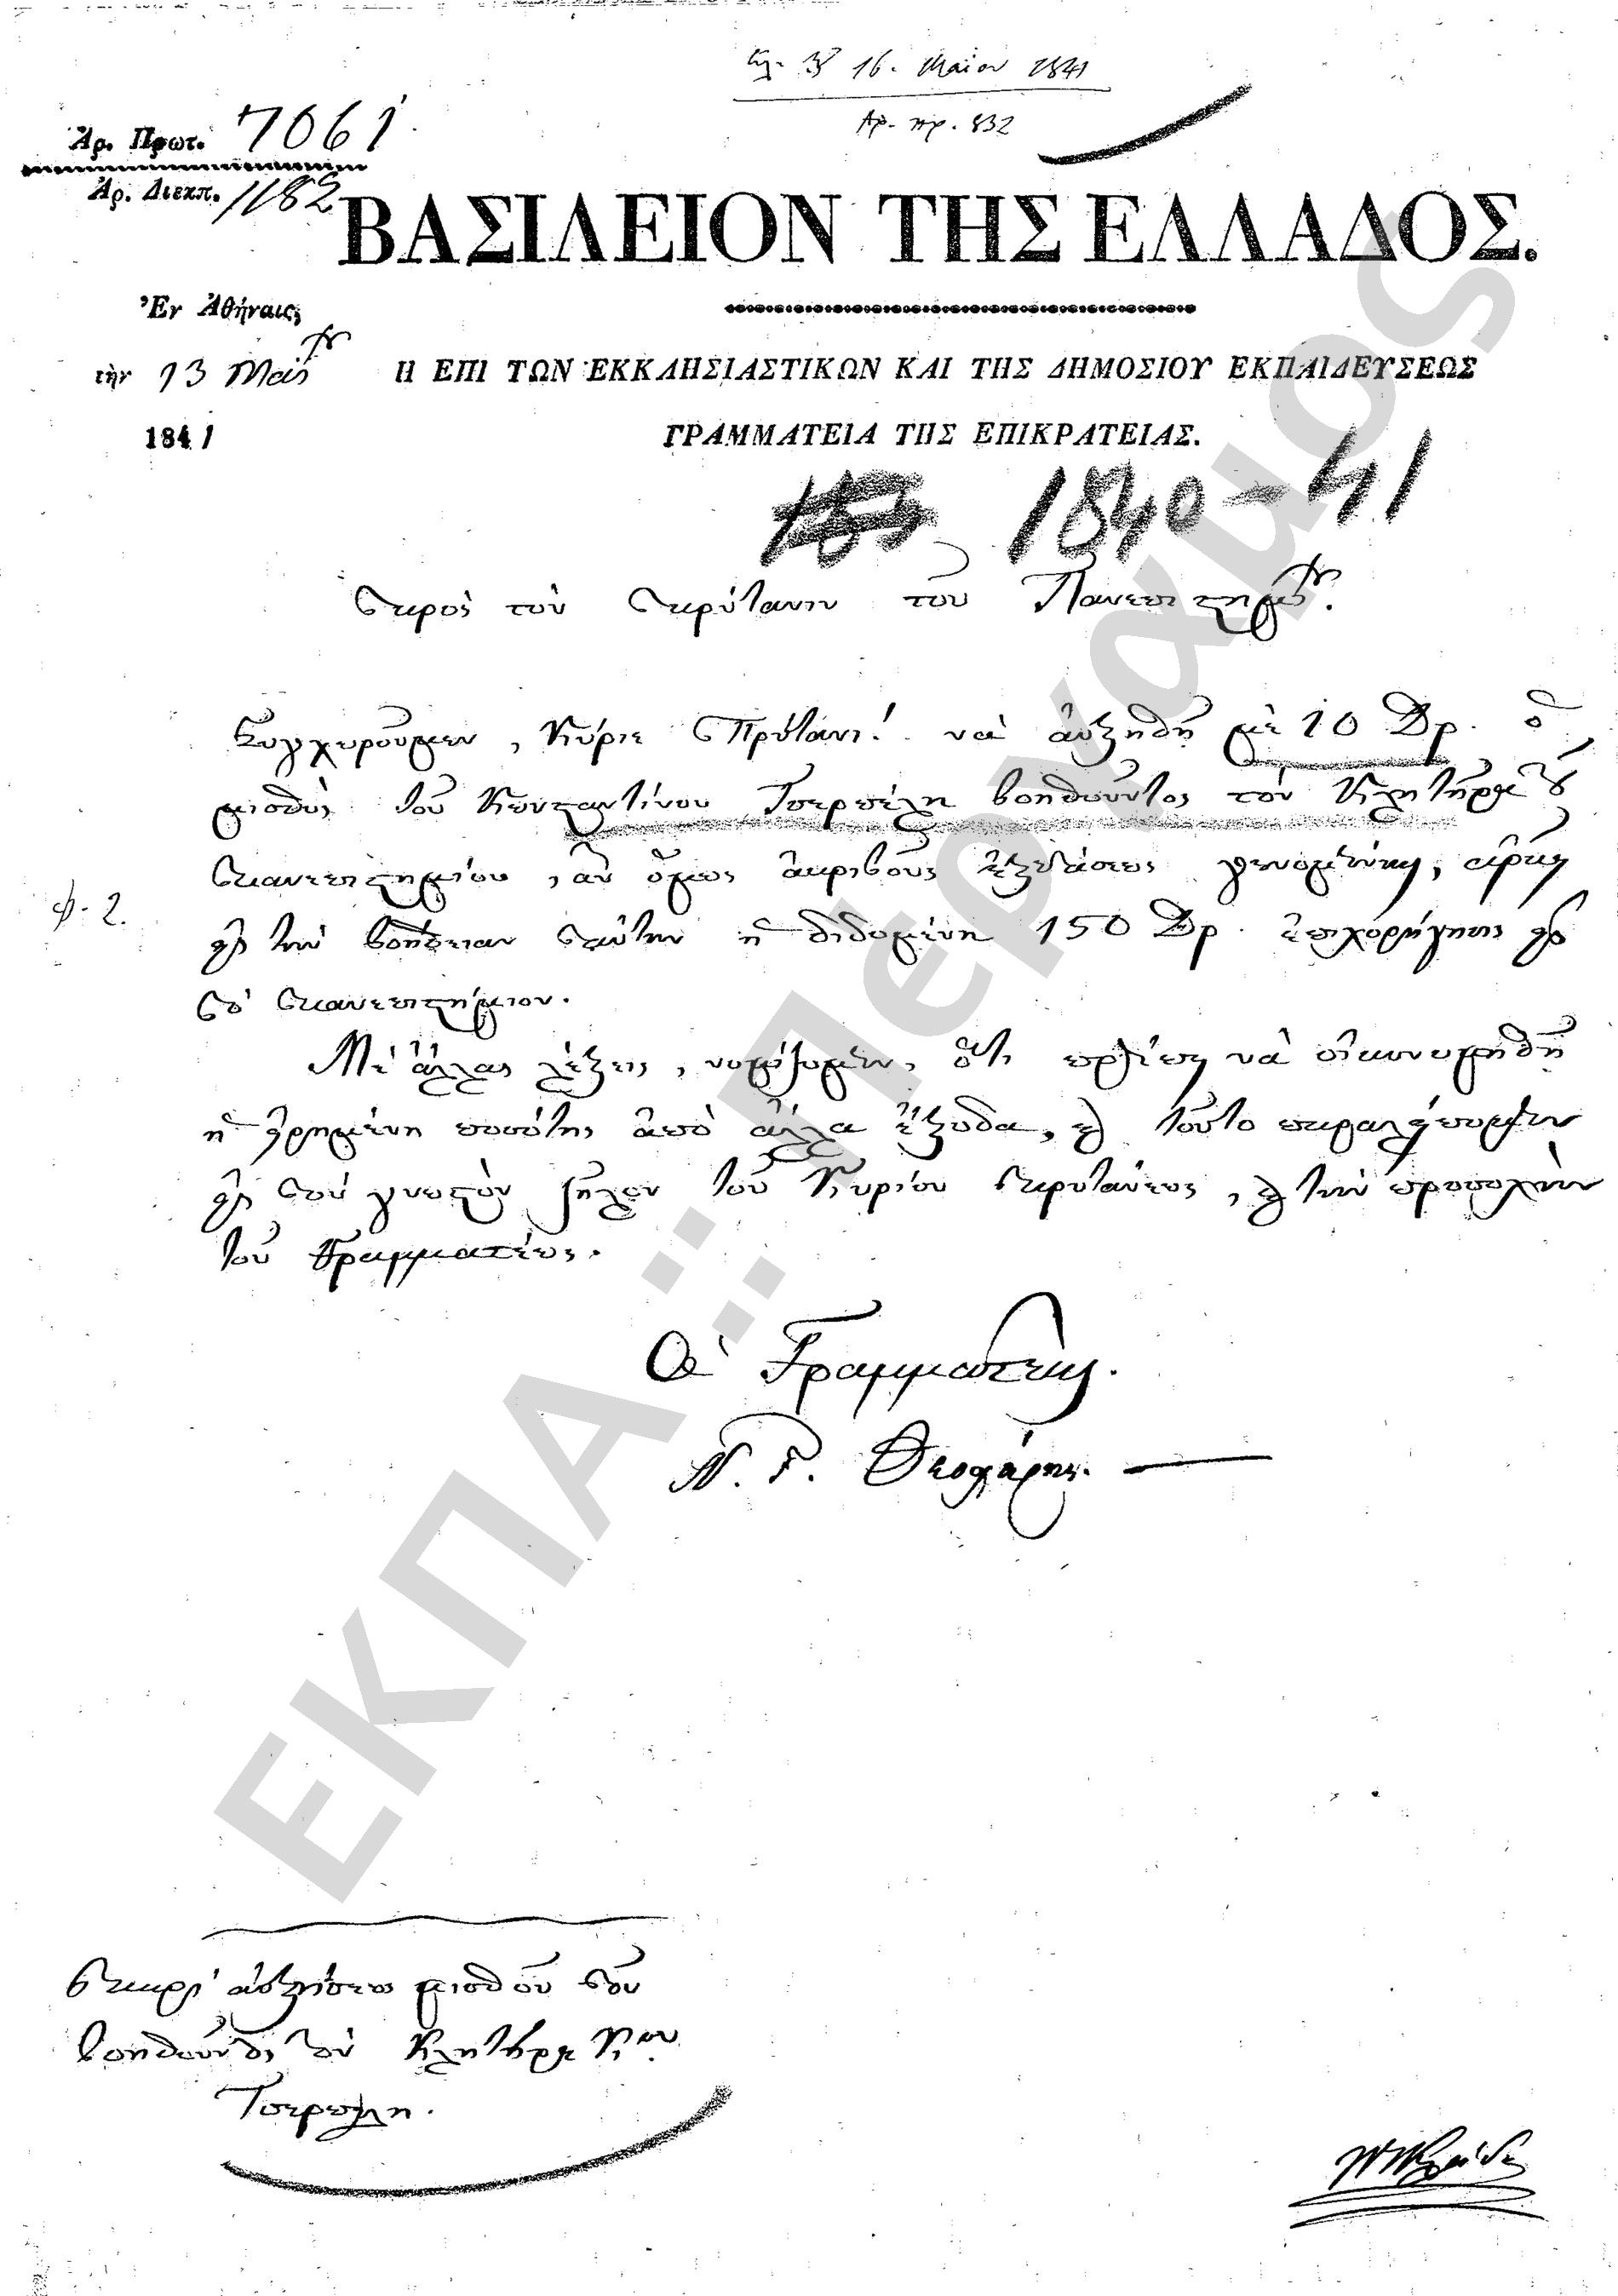 16. Μαΐου 1841
Αρ. πρ. 832
Ἀρ. Πρωτ. 7061
Ἀρ. Διεκπ. 1182
ΒΑΣΙΛΕΙΟΝ ΤΗΣ ΕΛΛΑΔΟΣ.
Ἐν Ἀθήναις,
τὴν 13 Μαΐου
1841
Η ΕΠΙ ΤΩΝ ΕΚΚΛΗΣΙΑΣΤΙΚΩΝ ΚΑΙ ΤΗΣ ΔΗΜΟΣΙΟΥ ΕΚΠΑΙΔΕΥΣΕΩΣ
ΓΡΑΜΜΑΤΕΙΑ ΤΗΣ ΕΠΙΚΡΑΤΕΙΑΣ.
1840-41
Πρὸς τὸν Πρύτανιν τοῦ Πανεπιστημίου.
Συγχωροῦμεν, Κύριε Πρύτανι! νὰ αὐξηθῇ μὲ 10 Δρ. ὁ
μισθὸς τοῦ Κωνσταντίνου Τσερπέλη βοηθοῦντος τὸν Κλητῆρα τοῦ
Πανεπιστημίου, ἂν ὅμως ἀκριβοῦς ἐξετάσεως γενομένης,
φ. 2.
εἰς τὴν βοήθειαν ταύτην ἡ διδομένη 150 Δρ. ἐπιχορήγησις εἰς
τὸ Πανεπιστήμιον.
Μὲ ἄλλας λέξεις, νομίζομεν, ὅτι πρέπει νὰ οἰκονομηθῇ
ἡ εἰρημένη ποσότης ἀπὸ ἄλλα ἔξοδα, καὶ τοῦτο
εἰς τὸν γνωστὸν ζῆλον τοῦ Κυρίου Πρυτάνεως, καὶ τὴν προσοχὴν
τοῦ Γραμματέως.
Ὁ Γραμματεὺς.
Ν. Γ. Θεοχάρης.
Περὶ αὐξήσεως μισθοῦ τοῦ
βοηθοῦντος τὸν Κλητῆρα Κ.
Τσερπέλη.
ΕΚΠΑ :: Πέργαμος